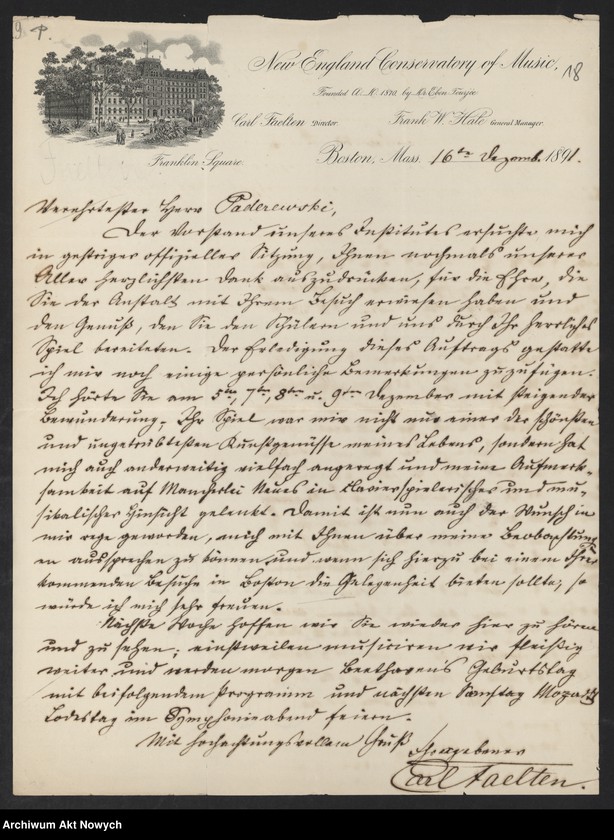 9.
P.
18
New England Conservatory of Music,
Founded A. D. 1870, by Dr. Eben Tourjée.
Carl Faelten Director.
Frank W. Hale General Manager.
Franklin Square.
Boston, Mass. 16ten Dezemb. 1891.
Verehrtester Herr Paderewski,
Der Vorstand unseres Institutes ersuchte mich
in gestriger offizieller Sitzung, Ihnen nochmals unseren
Aller herzlichsten Dank auszudrücken, für die Ehre, die
Sie der Anstalt mit Ihrem Besuch erwiesen haben und
den Genuß, den Sie den Schülern und uns durch Ihr herrliches
Spiel bereiteten. Der Erledigung dieses Auftrags gestatte
ich mir noch einige persönliche Bemerkungen zuzufügen.
Ich hörte Sie am 5ten, 7ten, 8ten u. 9ten Dezember mit steigender
Bewunderung. Ihr Spiel war mir nicht nur einer der schönsten
und ungetrübtesten Kunstgenüsse meines Lebens, sondern hat
mich auch anderweitig vielfach angeregt und meine Aufmerk-
samkeit auf Mancherlei Neues in clavierspielerischer und mu-
sikalischer Hinsicht gelenkt. Damit ist nun auch der Wunsch in
mir rege geworden, mich mit Ihnen über meine Beobachtung
en aussprechen zu können, und wenn sich hierzu bei einem Ihrer
kommenden Besuche in Boston die Gelegenheit bieten sollte, so
würde ich mich sehr freuen.
Nächste Woche hoffen wir Sie wieder hier zu hören
und zu sehen; einstweilen musiciren wir fleißig
weiter und werden morgen Beethoven's Geburtstag
mit beifolgendem Programm und nächsten Samstag Mozarts
Todestag im Symphonieabend feiern.
Mit hochachtungsvollem Gruß
Ihr ergebener
Carl Faelten.
Archiwum Akt Nowych